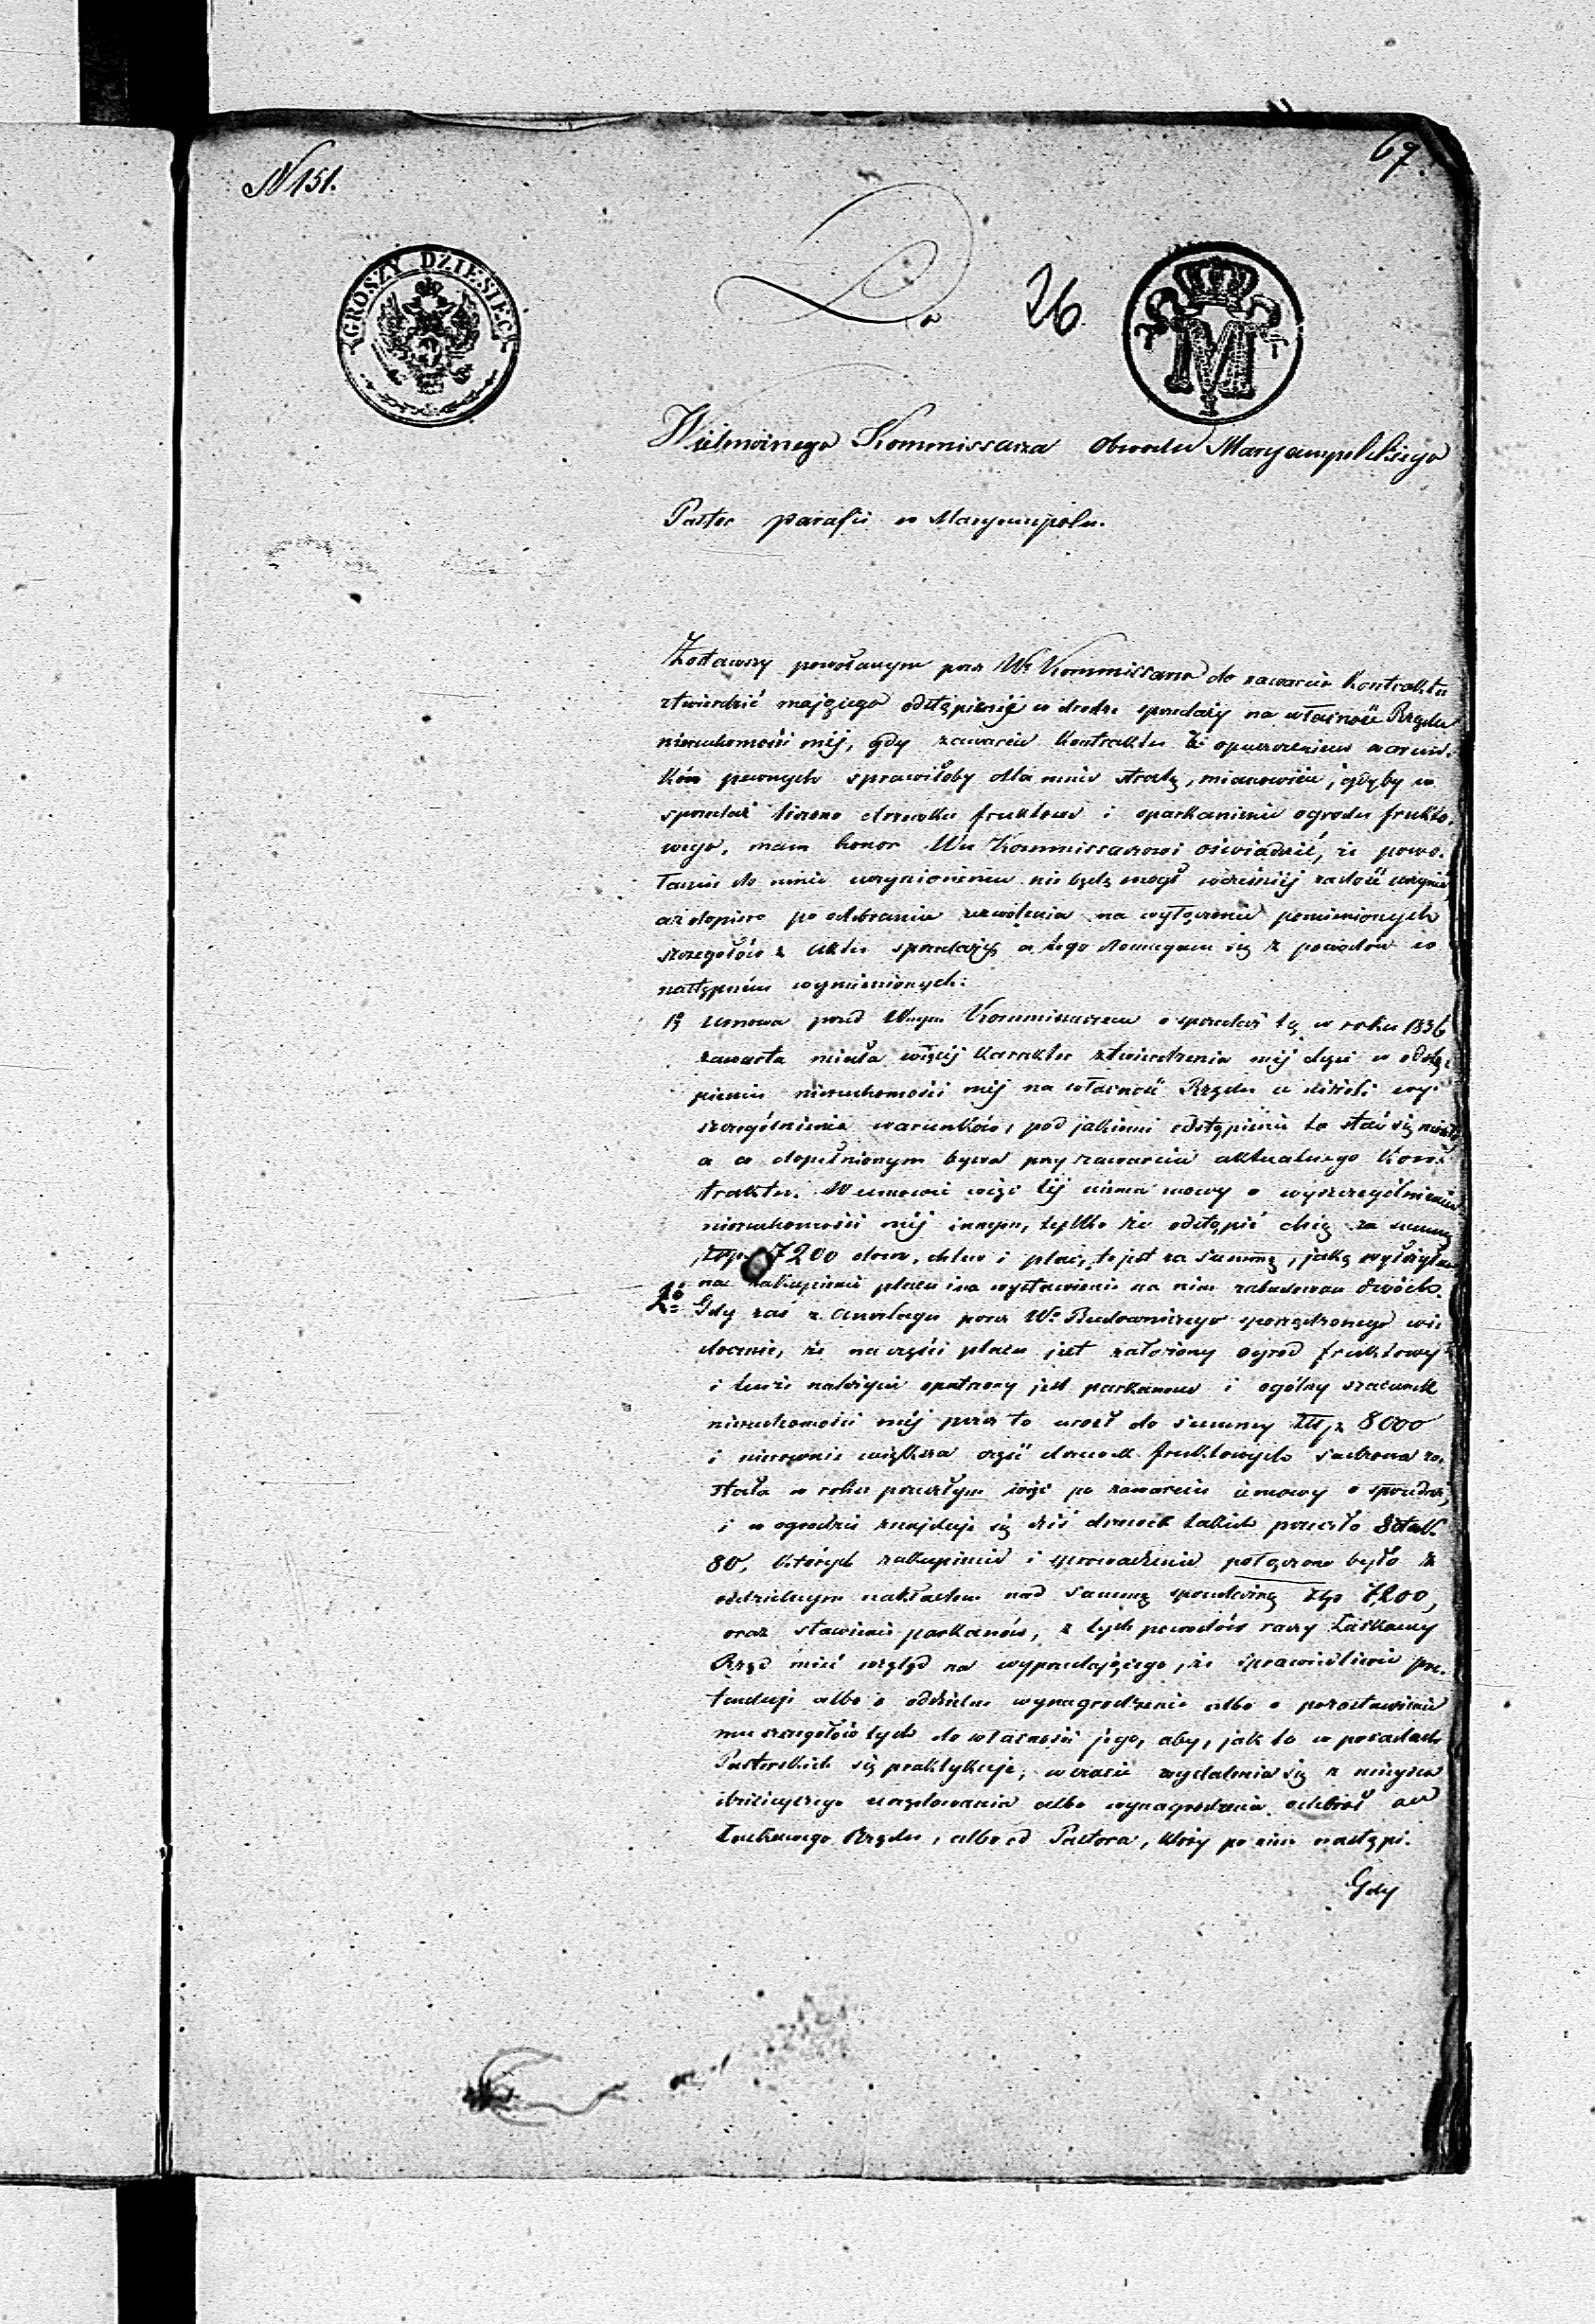 N 151.
67.
GROSZY DZIESIĘĆ
Do
26
M
Wielmożnego Kommissarza Obwodu Maryampolskiego
Pastor parafii w Maryampolu.
Zostawszy powołanym przez Wo Kommissarza do zawarcia Kontraktu
stwierdzić mającego odstąpienie w drodze sprzedaży na własność Rządu
nieruchomości méj, gdy zawarcie Kontraktu z opuszczeniem warun-
ków pewnych sprawiłoby dla mnie stratę, mianowicie, gdyby w
sprzedaż liczono drzewka fruktowe i oparkanienie ogrodu frukto-
wego, mam honor Wu Kommissarzowi oświadczyć, że powo-
łaniu do mnie uczynionemu nie będę mógł wcześniéj zadość uczynić,
aż dopiero po odebraniu zezwolenia na wyłączenie pomienionych
szczegołów z aktu sprzedaży a tego domagam się z powodów w
następnem wymienionych:
1o umowa przed Wnym Kommissarzem o sprzedaż tę w roku 1836
zawarta miała więcéj charakter stwierdzenia méj chęci w odstą-
pieniu nieruchomości méj na własność Rządu a niżeli wy-
szczególnienia warunków, pod jakiemi odstąpienie to stać się miało
a co dopełnionym bywa przy zawarciu aktualnego Kon-
traktu. W umowie więc téj niema mowy o wyszczególnieniu
nieruchomości méj innym, tylko że odstąpić chcę za summę
złp. 7200 dom, chlew i plac, to jest za summę, jaką wyłożyłem
na zakupienie placu i na wystawienie na nim zabudowań dwóch.
2o Gdy zaś z anszlagu przez Wo Budowniczego sporządzonego wi-
docznie, że na części placu jest założony ogród fruktowy
i tenże należycie opatrzony jest parkanem i ogólny szacunek
nieruchomości méj przez to urosł do summy złp. 8000
i nierównie większa część drzewek fruktowych sadzona zo-
stała w roku przeszłym więc po zawarciu umowy o sprzedaż,
i w ogrodzie znajduje się dziś drzewek takich przeszło sztuk
80, których zakupienie i sprowadzenie połączone było z
oddzielnym nakładem nad summę sprzedażną złp 7,200,
oraz stawienie parkanów, z tych powodów raczy Łaskawy
Rząd mieć wzgląd na wyprzedającego, że sprawiedliwie pre-
tenduje albo o oddzielne wynagrodzenie albo o pozostawienie
mu szczegołów tych do własności jego, aby, jak to w posadach
Pastorskich się praktykuje, w czasie wydalenia się z miejsca
dzisiejszego urzędowania albo wynagrodzenie odebrał od
Łaskawego Rządu, albo od Pastora, który po nim nastąpi.
Gdy